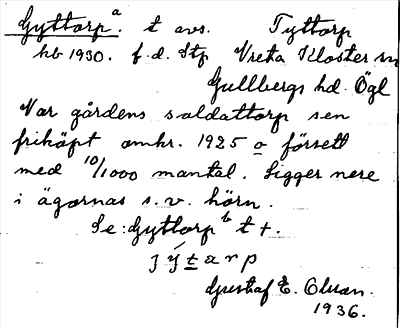 Gyttorp a. t avs. Tyttorp
hb 1930. f.d. Stp Vreta Kloster sn
Gullbergs hd. Ögl
Var gårdens soldattorp sen
friköpt omkr. 1925 o försett
med 10/1000 mantal. Ligger nere
i ägornas s.v. hörn.
Se: Gyttorp b t +.
j ý t a r p
Gustaf E. Olsson.
1936.